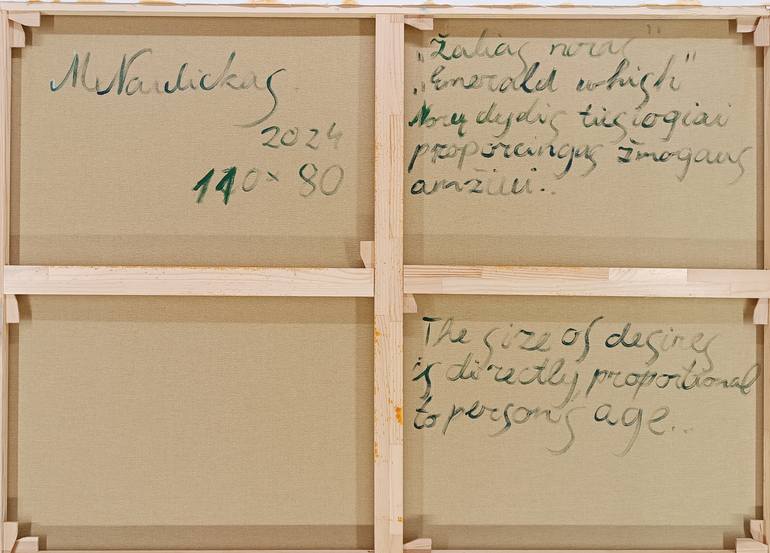 M Navickas
2024
110 × 80
„Žalias noras"
„Emerald whish"
Norų dydis tiesiogiai
proporcingas žmogaus
amžiui..
The size of desires
is directly proportional
to persons age...